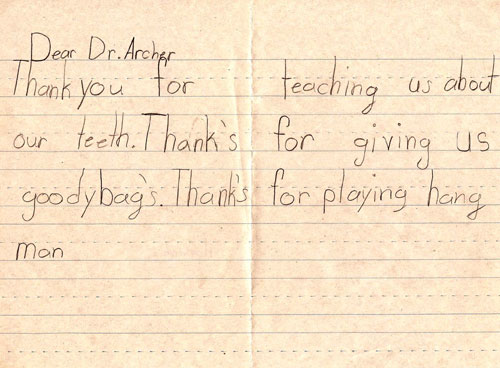 Dear Dr. Archer
Thank you for teaching us about
our teeth. Thank's for giving us
goodybag's. Thank's for playing hang
man